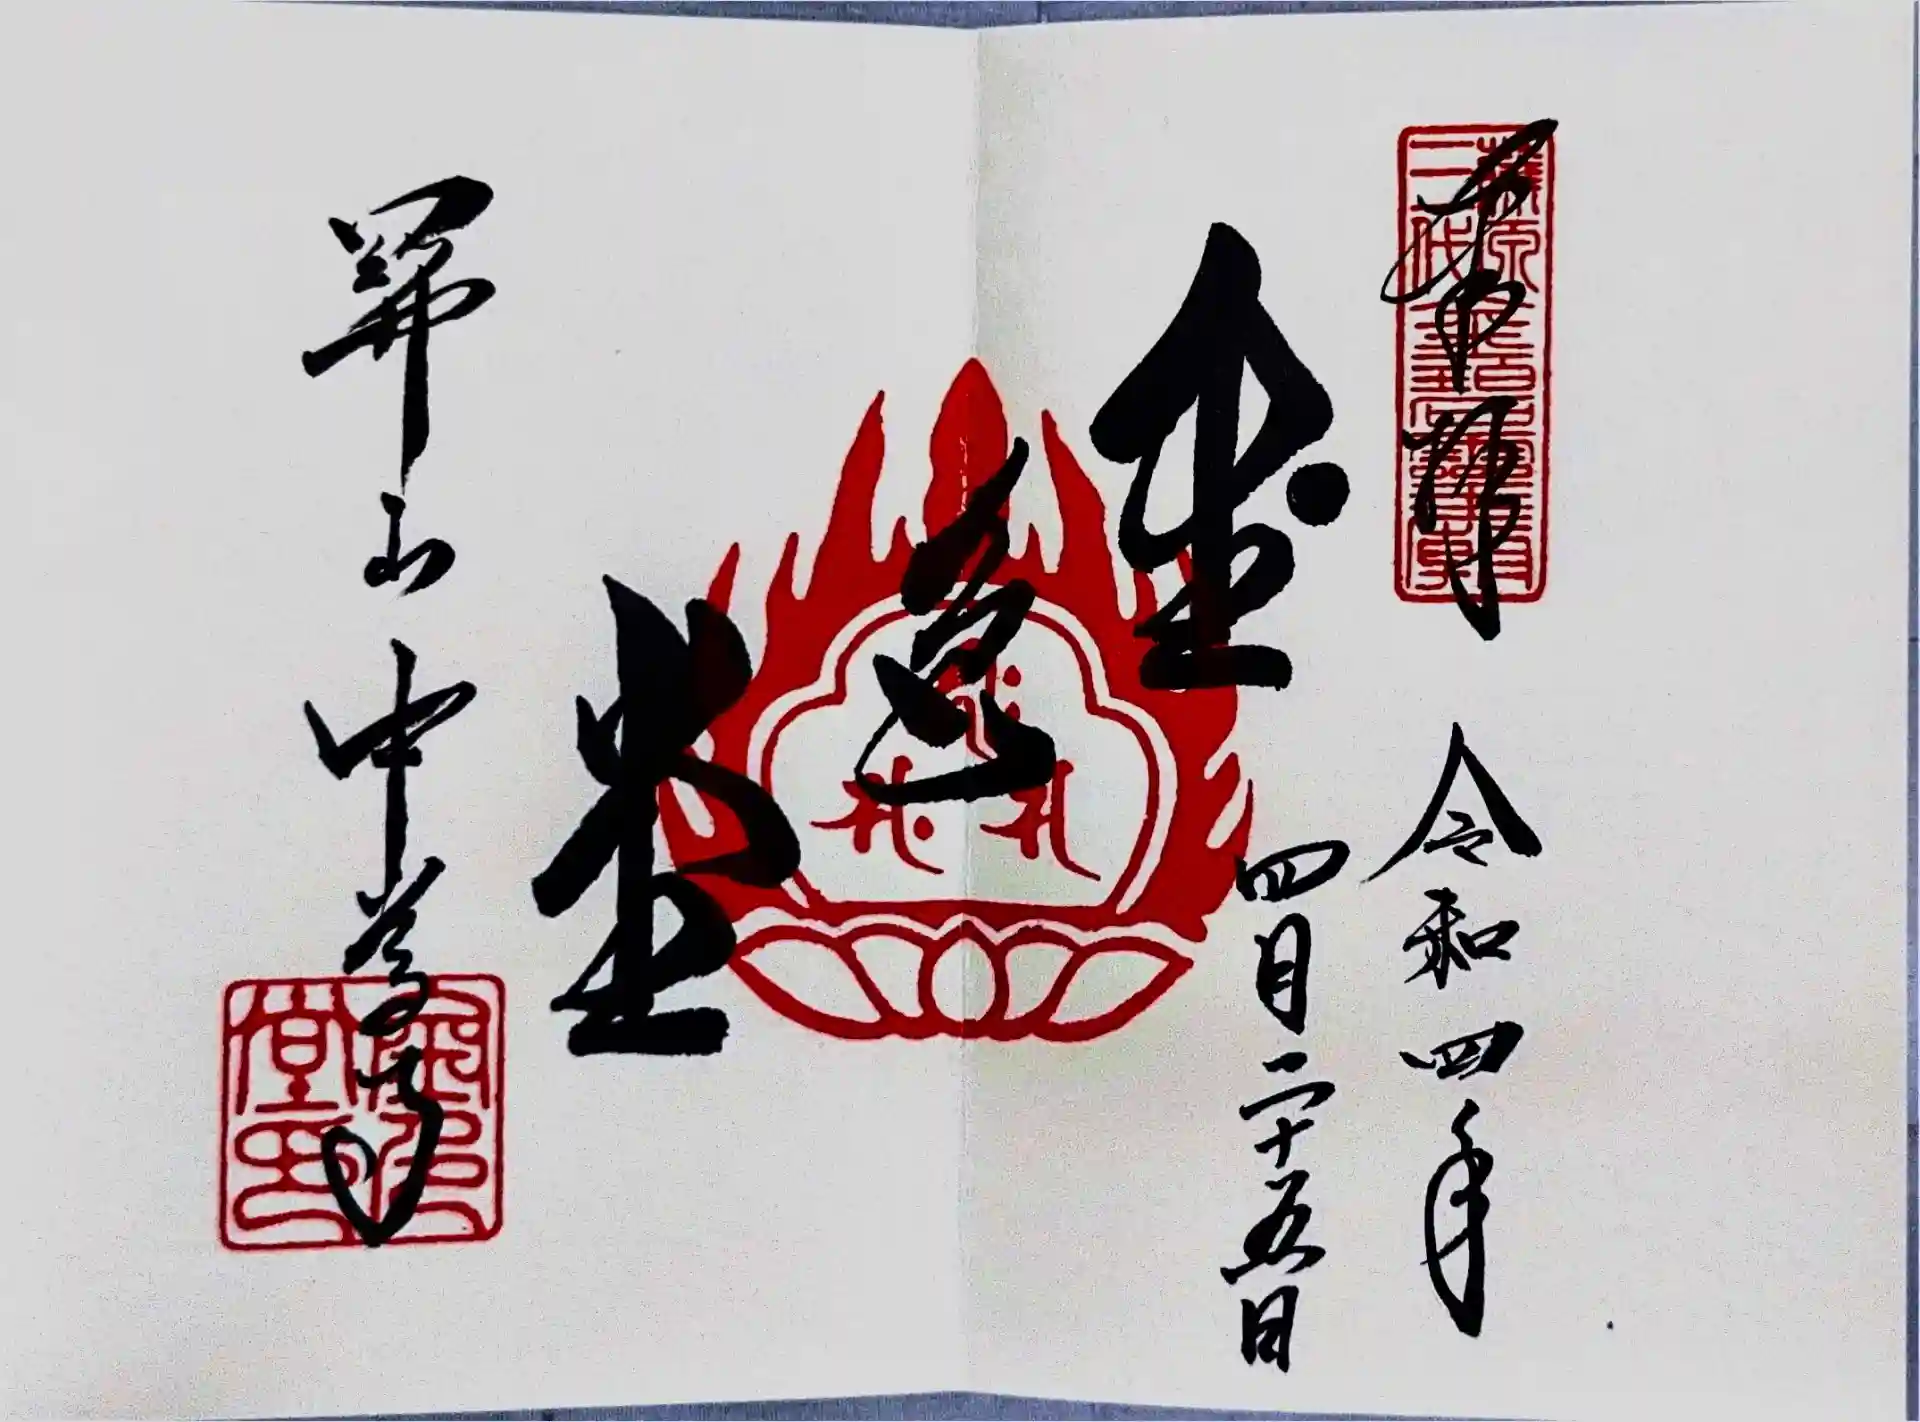 奉拝
令和四年
四月二十五日
金色堂
関山中尊寺